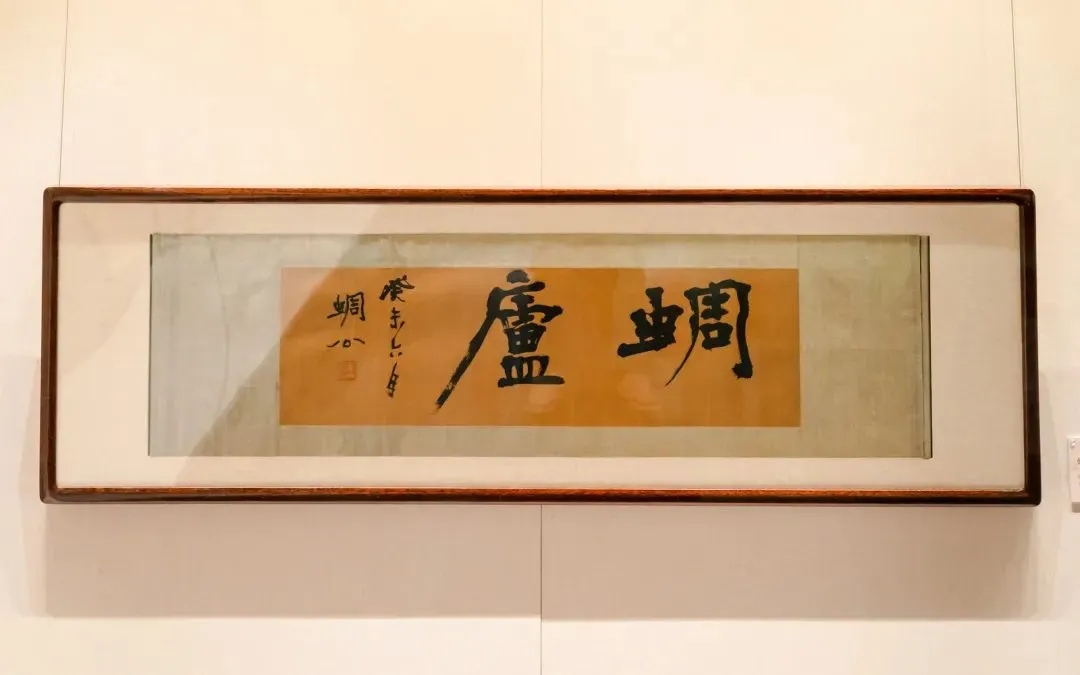 蜩廬
癸未六月
蜩公